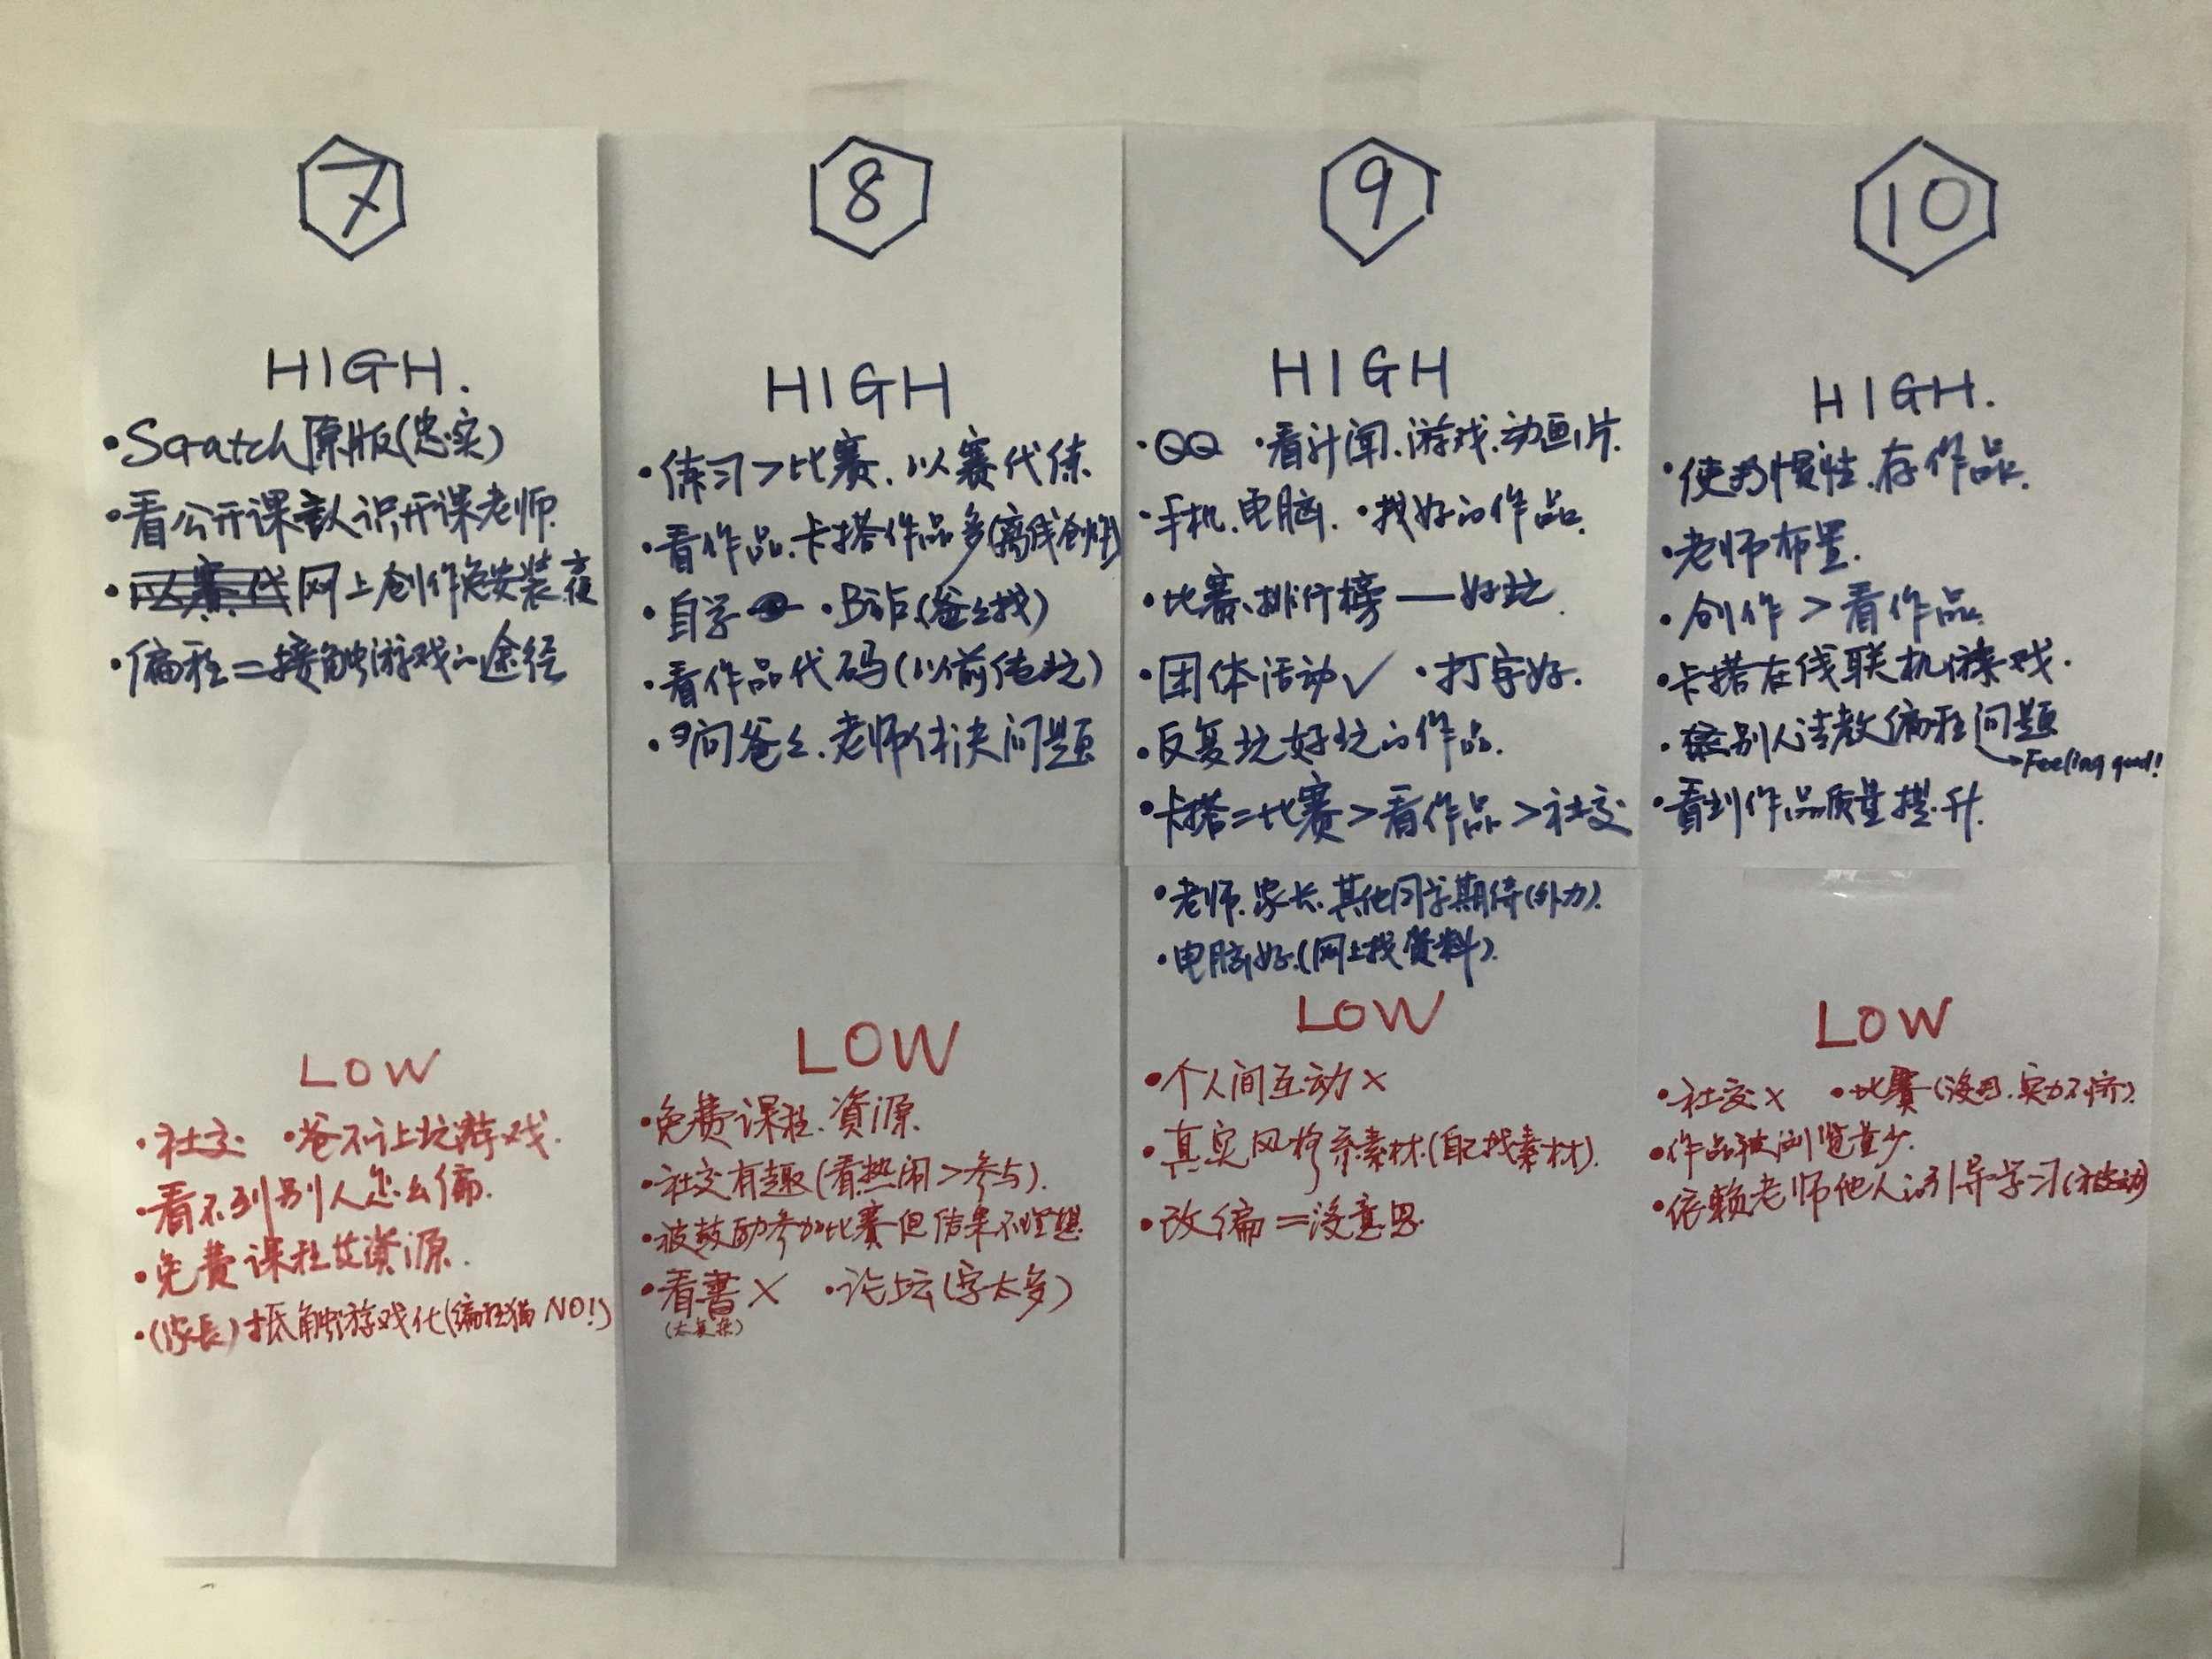 7
HIGH.
·Scratch原版(忠实)
·看公开课认识开课老师.
·网上创作免安装方便
·编程=接触游戏的途径
LOW
·社交 ·爸不让玩游戏.
·看不到别人怎么编.
·免费课程找資源.
·(家長)抵触游戏化(编程猫 NO!)
8
HIGH
·练习>比赛.以赛代练
·看作品.卡搭作品多(离线创作)
·自学 ·B站(爸爸找)
·看作品代码(以前纯玩)
·问爸爸.老师解决问题
LOW
·免费课程.資源.
·社交有趣(看热闹>参与).
·被鼓励参加比赛但结果不理想
·看書× ·论坛(字太多)
(太复杂)
9
HIGH
·QQ ·看新闻.游戏.动画片.
·手机.电脑. ·找好的作品.
·比赛、排行榜——好玩.
·团体活动✓ ·打字好.
·反复玩好玩的作品.
·卡搭=比赛>看作品>社交
·老师.家长.其他同学期待(外力).
·电脑好.(网上找資料).
LOW
·个人间互动×
·真实风格系素材.(自己找素材).
·改编=没意思.
10
HIGH.
·使用惯性.存作品.
·老师布置.
·创作>看作品.
·卡搭在线联机游戏.
·别人请教编程问题
→Feeling good!
·看到作品质量提升.
LOW
·社交× ·比赛(没用.实力不济).
·作品被浏览量少.
·依赖老师他人的引导学习(被动)